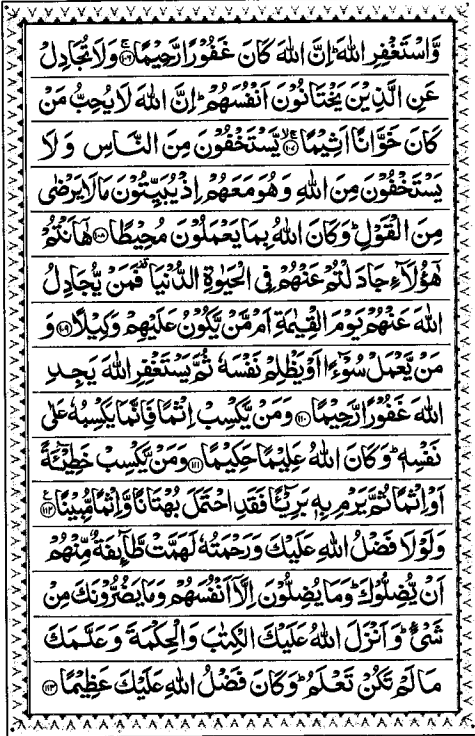 وَّاسْتَغْفِرِ اللّٰهَ ؕ اِنَّ اللّٰهَ كَانَ غَفُوْرًا رَّحِيْمًا ﴿۱۰۶﴾ وَلَا تُجَادِلْ
عَنِ الَّذِيْنَ يَخْتَانُوْنَ اَنْفُسَهُمْ ؕ اِنَّ اللّٰهَ لَا يُحِبُّ مَنْ
كَانَ خَوَّانًا اَثِيْمًا ﴿۱۰۷﴾ يَّسْتَخْفُوْنَ مِنَ النَّاسِ وَلَا
يَسْتَخْفُوْنَ مِنَ اللّٰهِ وَهُوَ مَعَهُمْ اِذْ يُبَيِّتُوْنَ مَا لَا يَرْضٰى
مِنَ الْقَوْلِ ؕ وَكَانَ اللّٰهُ بِمَا يَعْمَلُوْنَ مُحِيْطًا ﴿۱۰۸﴾ هٰٓاَنْتُمْ
هٰٓؤُلَآءِ جَادَلْتُمْ عَنْهُمْ فِى الْحَيٰوةِ الدُّنْيَا فَمَنْ يُّجَادِلُ
اللّٰهَ عَنْهُمْ يَوْمَ الْقِيٰمَةِ اَمْ مَّنْ يَّكُوْنُ عَلَيْهِمْ وَكِيْلًا ﴿۱۰۹﴾ وَ
مَنْ يَّعْمَلْ سُوْٓءًا اَوْ يَظْلِمْ نَفْسَهٗ ثُمَّ يَسْتَغْفِرِ اللّٰهَ يَجِدِ
اللّٰهَ غَفُوْرًا رَّحِيْمًا ﴿۱۱۰﴾ وَمَنْ يَّكْسِبْ اِثْمًا فَاِنَّمَا يَكْسِبُهٗ عَلٰى
نَفْسِهٖ ؕ وَكَانَ اللّٰهُ عَلِيْمًا حَكِيْمًا ﴿۱۱۱﴾ وَمَنْ يَّكْسِبْ خَطِيْٓئَةً
اَوْ اِثْمًا ثُمَّ يَرْمِ بِهٖ بَرِيْٓئًا فَقَدِ احْتَمَلَ بُهْتَانًا وَّاِثْمًا مُّبِيْنًا ﴿۱۱۲﴾
وَلَوْلَا فَضْلُ اللّٰهِ عَلَيْكَ وَرَحْمَتُهٗ لَهَمَّتْ طَّآئِفَةٌ مِّنْهُمْ
اَنْ يُّضِلُّوْكَ ؕ وَمَا يُضِلُّوْنَ اِلَّآ اَنْفُسَهُمْ وَمَا يَضُرُّوْنَكَ مِنْ
شَىْءٍ ؕ وَاَنْزَلَ اللّٰهُ عَلَيْكَ الْكِتٰبَ وَالْحِكْمَةَ وَعَلَّمَكَ
مَا لَمْ تَكُنْ تَعْلَمُ ؕ وَكَانَ فَضْلُ اللّٰهِ عَلَيْكَ عَظِيْمًا ﴿۱۱۳﴾